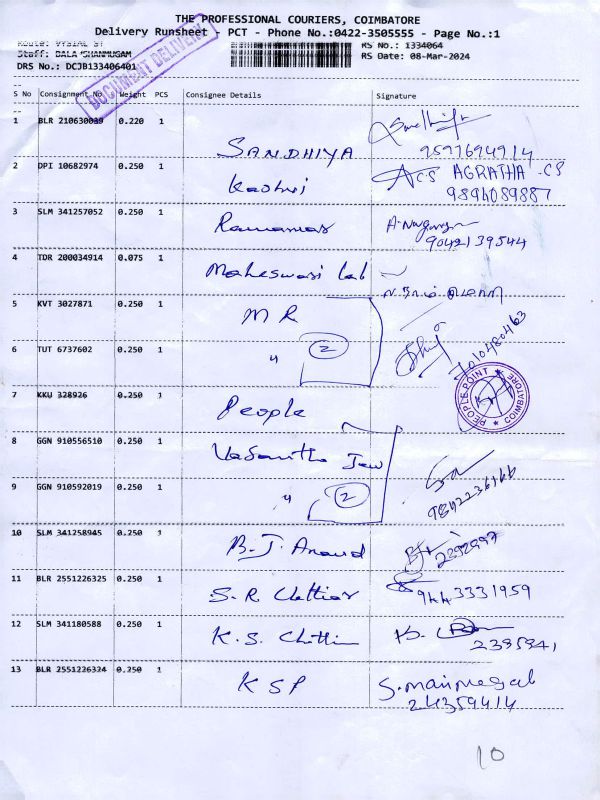 THE PROFESSIONAL COURIERS, COIMBATORE
Delivery Runsheet - PCT - Phone No.:0422-3505555 - Page No.:1
RS No.: 1334064
Staff: BALA SHANMUGAM
RS Date: 08-Mar-2024
DRS No.: DCJB133406401
DOCUMENT DELIVERY
S No Consignment No Weight PCS Consignee Details Signature
1 BLR 210630039 0.220 1 SANDHIYA
9597694914
2 DPI 10682974 0.250 1 ACS AGRATHA.CS
9894089887
3 SLM 341257052 0.250 1
9042139544
4 TDR 200034914 0.075 1 Maheswari Lab
5 KVT 3027871 0.250 1 M R
6 TUT 6737602 0.250 1 " 2
7010480463
7 KKU 328926 0.250 1 People
PEOPLE POINT COIMBATORE
8 GGN 910556510 0.250 1 Vasantha Jew
9 GGN 910592019 0.250 1 " 2
9842236166
10 SLM 341258945 0.250 1 B.J. Anand
2392997
11 BLR 2551226325 0.250 1 S.R. Chettiar
9443331959
12 SLM 341180588 0.250 1 K.S. Chettiar
2395841
13 BLR 2551226324 0.250 1 K S P
24359414
10